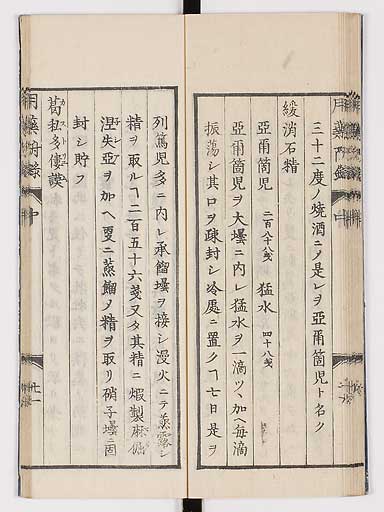 三十二度ノ焼酒ニノ是レヲ亞甬箇児ト名ク
緩消石精
亞甬箇児 二百八十八戔 猛水 四十八戔
亞甬箇児ヲ大壜ニ内レ猛水ヲ一滴ツヽ加ヘ毎滴
振蕩シ其口ヲ疎封シ冷處ニ置クヿ七日是ヲ
列篤児多ニ内レ承餾壜ヲ接シ漫火ニテ蒸露シ
精ヲ取ルヿ二百五十六戔又タ其精ニ煆製麻倔
涅失亞ヲ加ヘ更ニ蒸餾ノ精ヲ取リ硝子壜ニ固
封シ貯フ
葛私多僂謨
カストリウム